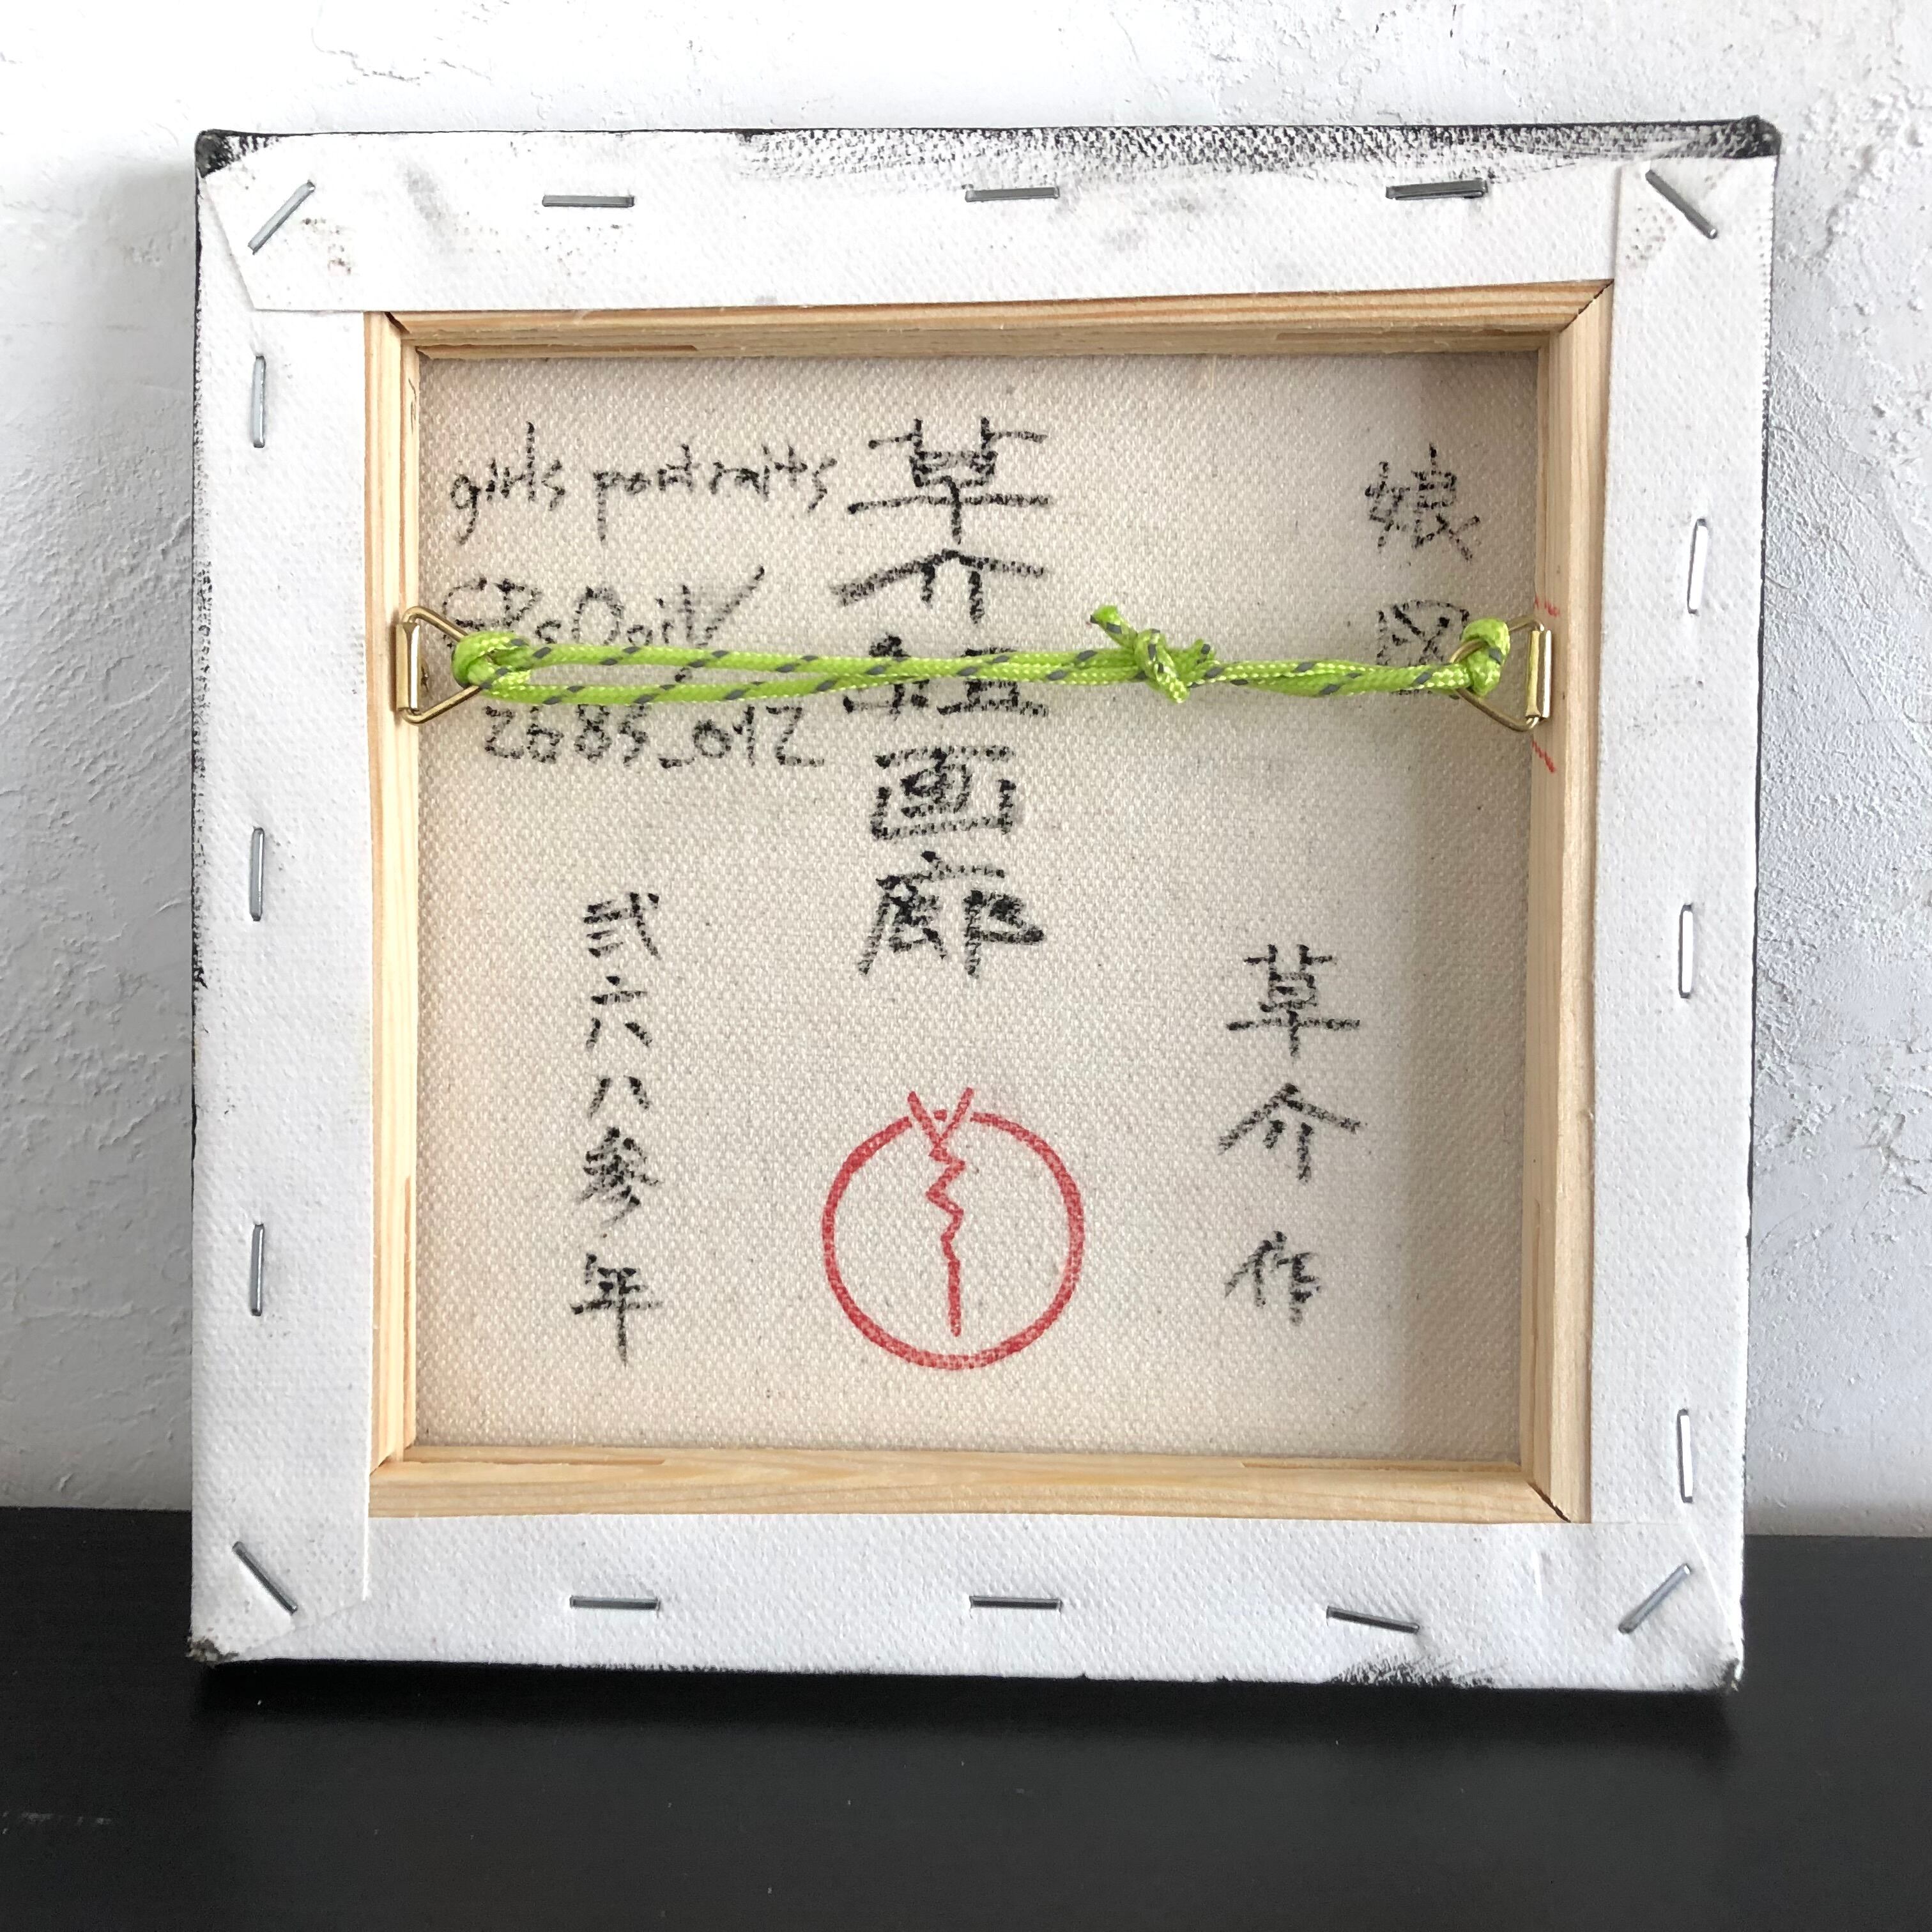 娘図
草介 作
草介組画廊
girls portraits
2683_012
弐六八参年